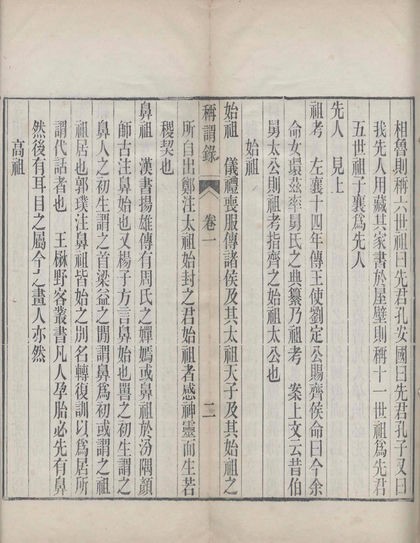 相魯則稱六世祖曰先君孔安國曰先君孔子又曰
我先人用藏其家書於屋壁則稱十一世祖爲先君
五世祖子襄爲先人
先人 見上
祖考 左襄十四年傳王使劉定公賜齊侯命曰今余
命女環茲率舅氏之典纂乃祖考 案上文云昔伯
舅太公則祖考指齊之始祖太公也
始祖
始祖 儀禮喪服傳諸侯及其太祖天子及其始祖之
稱謂錄 卷一 二
所自出鄭注太祖始封之君始祖者感神靈而生若
稷契也
鼻祖 漢書揚雄傳有周氏之嬋嫣或鼻祖於汾隅顏
師古注鼻始也又楊子方言鼻始也嘼之初生謂之
鼻人之初生謂之首梁益之閒謂鼻爲初或謂之
祖居也郭璞注鼻祖皆始之別名轉復訓以爲居所
謂代語者也 王楙野客叢書凡人孕胎必先有鼻
然後有耳目之屬今之畫人亦然
高祖